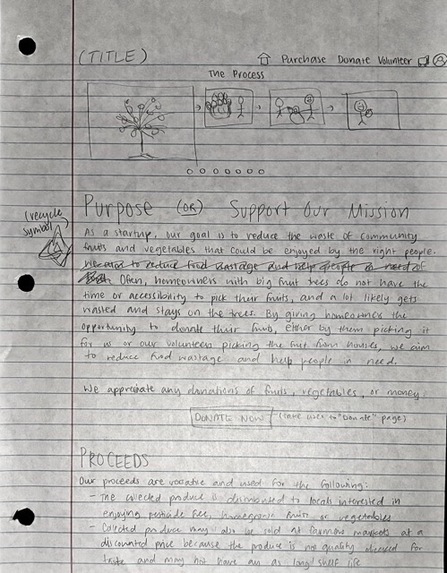 (TITLE)
Purchase Donate Volunteer
The Process
(recycle symbol)
Purpose (OR) Support Our Mission
As a startup, our goal is to reduce the waste of community
fruits and vegetables that could be enjoyed by the right people.
to reduce food wastage and help people in need of
Often, homeowners with big fruit trees do not have the
time or accessibility to pick their fruits, and a lot likely gets
wasted and stays on the trees. By giving homeowners the
opportunity to donate their fruits, either by them picking it
for us or our volunteer picking the fruit from houses, we aim
to reduce food wastage and help people in need.
We appreciate any donations of fruits, vegetables, or money.
DONATE NOW (take user to "Donate" page)
PROCEEDS
Our proceeds are and used for the following:
- The collected produce is to locals interested in
enjoying pesticide free, homegrown fruits or vegetables
- Collected produce may also be sold at farmers markets at a
discounted price because the produce is not quality for
taste and may not have an as long shelf life